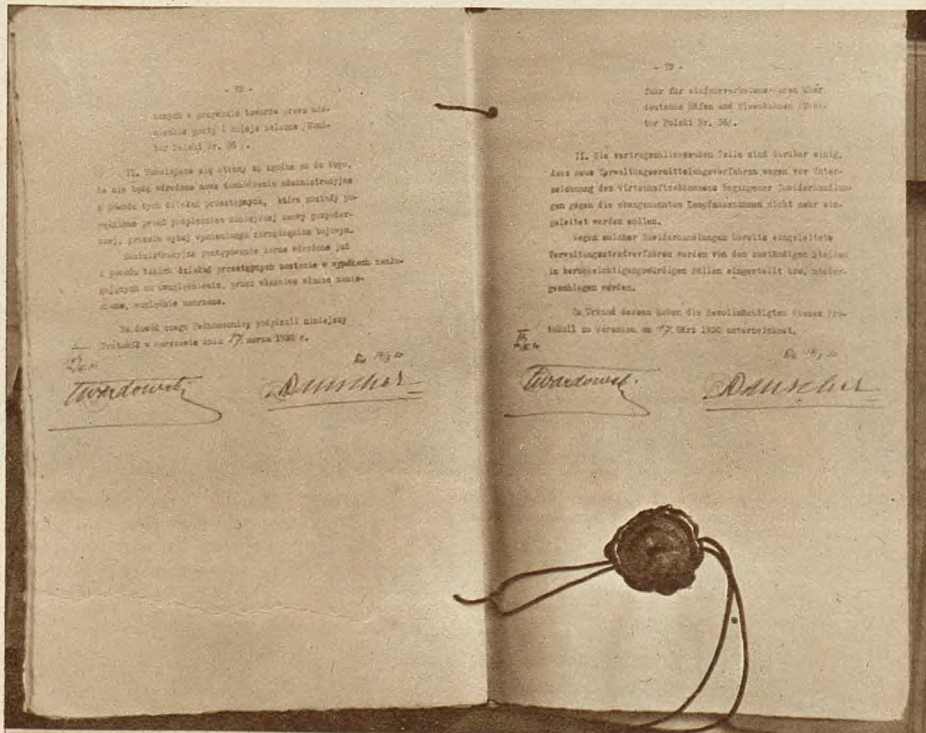 - 73 -
zanych w przywozie towarów przez nie-
mieckie porty i koleje żelazne /Moni-
tor Polski Nr. 36/.
II. Umawiające się strony są zgodne co do tego,
że nie będą wdrożone nowe dochodzenia administracyjne
z powodu tych działań przestępnych, które zostały po-
pełnione przed podpisaniem niniejszej umowy gospodar-
czej, przeciw wyżej wymienionym zarządzeniom bojowym.
Administracyjne postępowanie karne wdrożone już
z powodu takich działań przestępnych zostanie w wypadkach zasłu-
gujących na uwzględnienie, przez właściwe władze zanie-
chane, względnie umorzone.
Na dowód czego Pełnomocnicy podpisali niniejszy
Protokół w Warszawie dnia 17 marca 1930 r.
Twardowski
Rauscher
- 73 -
fuhr für einfuhrverbotene Waren über
deutsche Häfen und Eisenbahnen /Moni-
tor Polski Nr. 36/.
II. Die vertragschliessenden Teile sind darüber einig,
dass neue Verwaltungsermittelungsverfahren wegen vor Unter-
zeichnung des Wirtschaftsabkommens begangener Zuwiderhandlun-
gen gegen die obengenannten Kampfmassnahmen nicht mehr ein-
geleitet werden sollen.
Wegen solcher Zuwiderhandlungen bereits eingeleitete
Verwaltungsstrafverfahren werden von den zuständigen Stellen
in berücksichtigungswürdigen Fällen eingestellt bzw. nieder-
geschlagen werden.
Zu Urkund dessen haben die Bevollmächtigten dieses Pro-
tokoll zu Warschau am 17. März 1930 unterzeichnet.
Twardowski
Rauscher